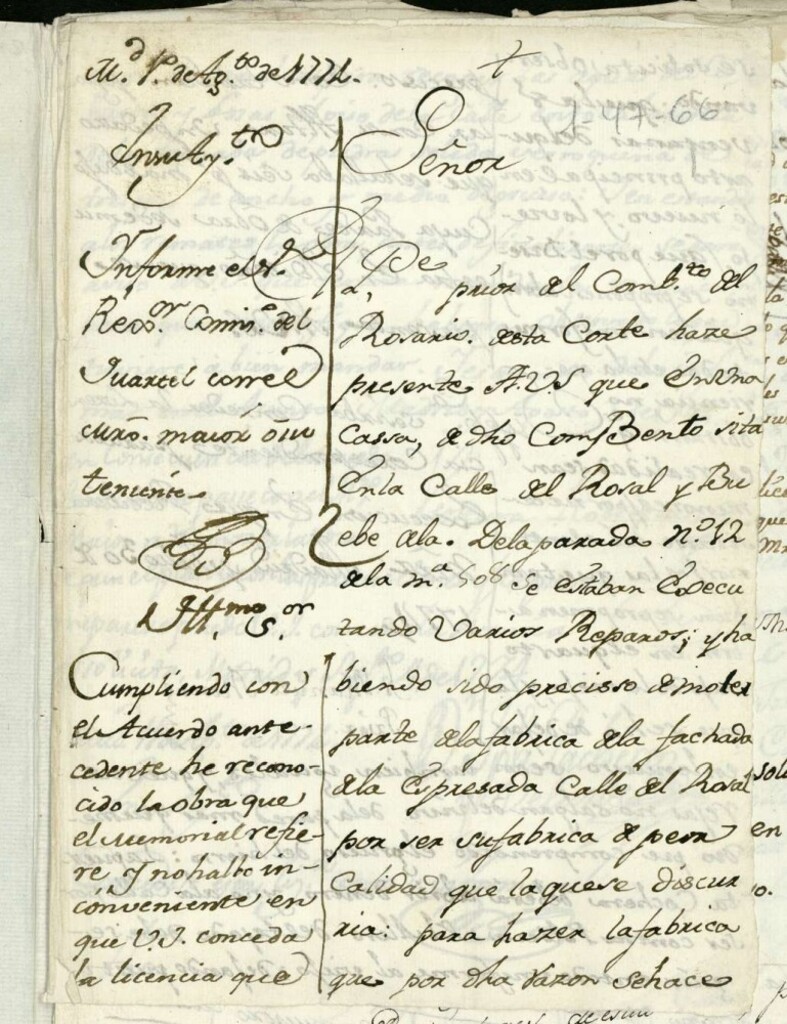 M.d 1.o de Ag.to de 1771.
+
1-47-66
En su Ay.to
Informe el S.r
Rex.or Comis.o del
Quartel con el
cuio. maior ó su
teniente
Ill.mo S.or
Cumpliendo con
el Acuerdo ante-
cedente he recono-
cido la obra que
el Memorial refie-
re y no hallo in-
conveniente en
que V.I. conceda
la licencia que
Señor
prior del Comb.to del
Rosario. de sta Corte haze
presente A.V.S que En Vna
Cassa, de dho ComBento sita
En la Calle del Rosal y Bu
elbe ala. De la parada N.o 12
de la m.a 508 se Estaban Execu
tando Varios Reparos; y ha
biendo sido precisso demoler
parte de la fabrica de la fachada
de la Expresada Calle del Rosal
por ser su fabrica de peor
Calidad que la que se discur
ria: para hazer la fabrica
que por dha razon se hace